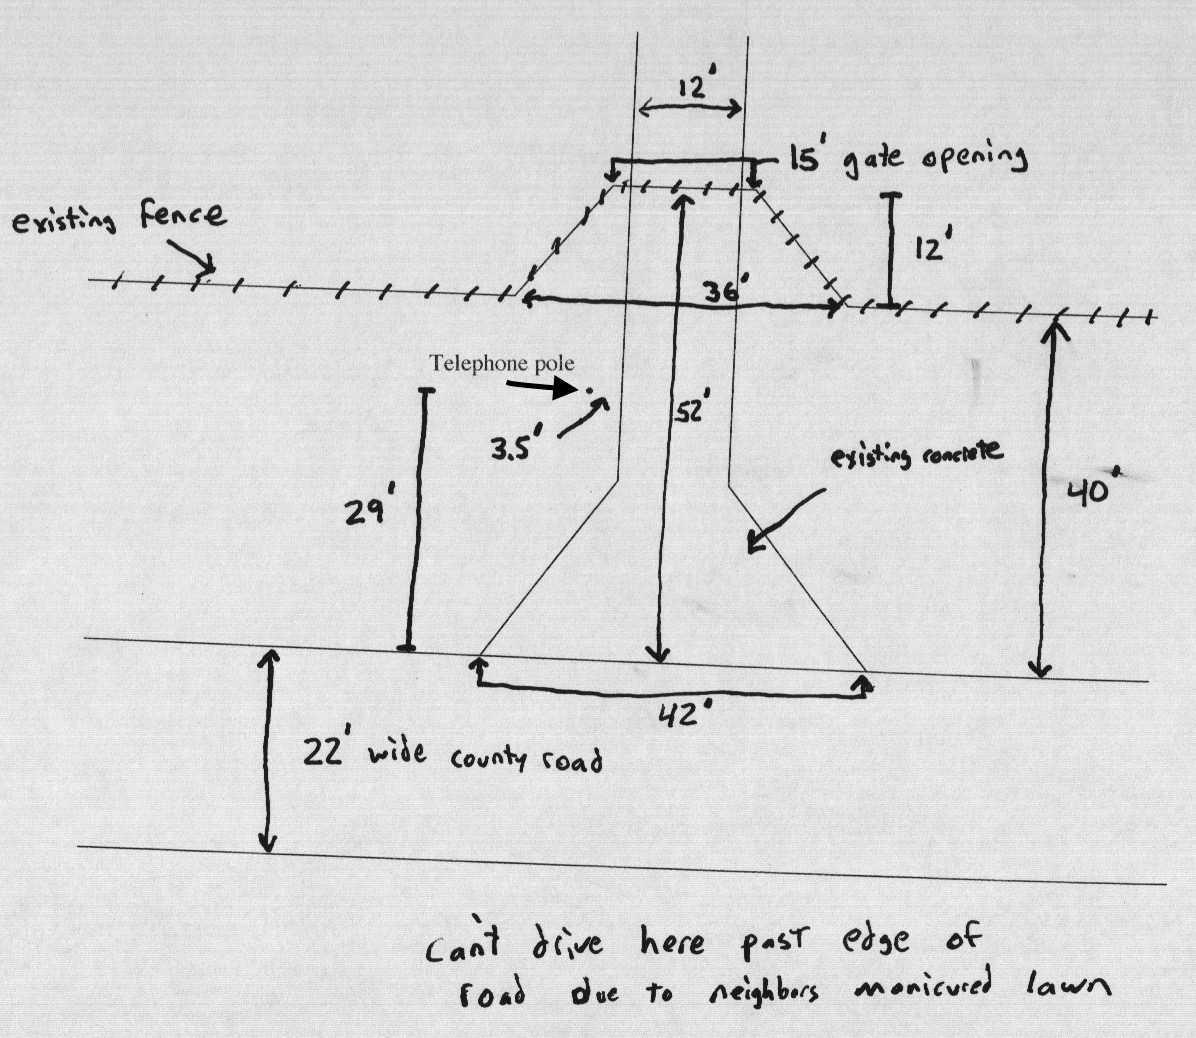 12'
15' gate opening
existing fence
12'
36'
Telephone pole
52'
3.5'
existing concrete
29'
40'
42'
22' wide county road
Can't drive here past edge of
road due to neighbors manicured lawn